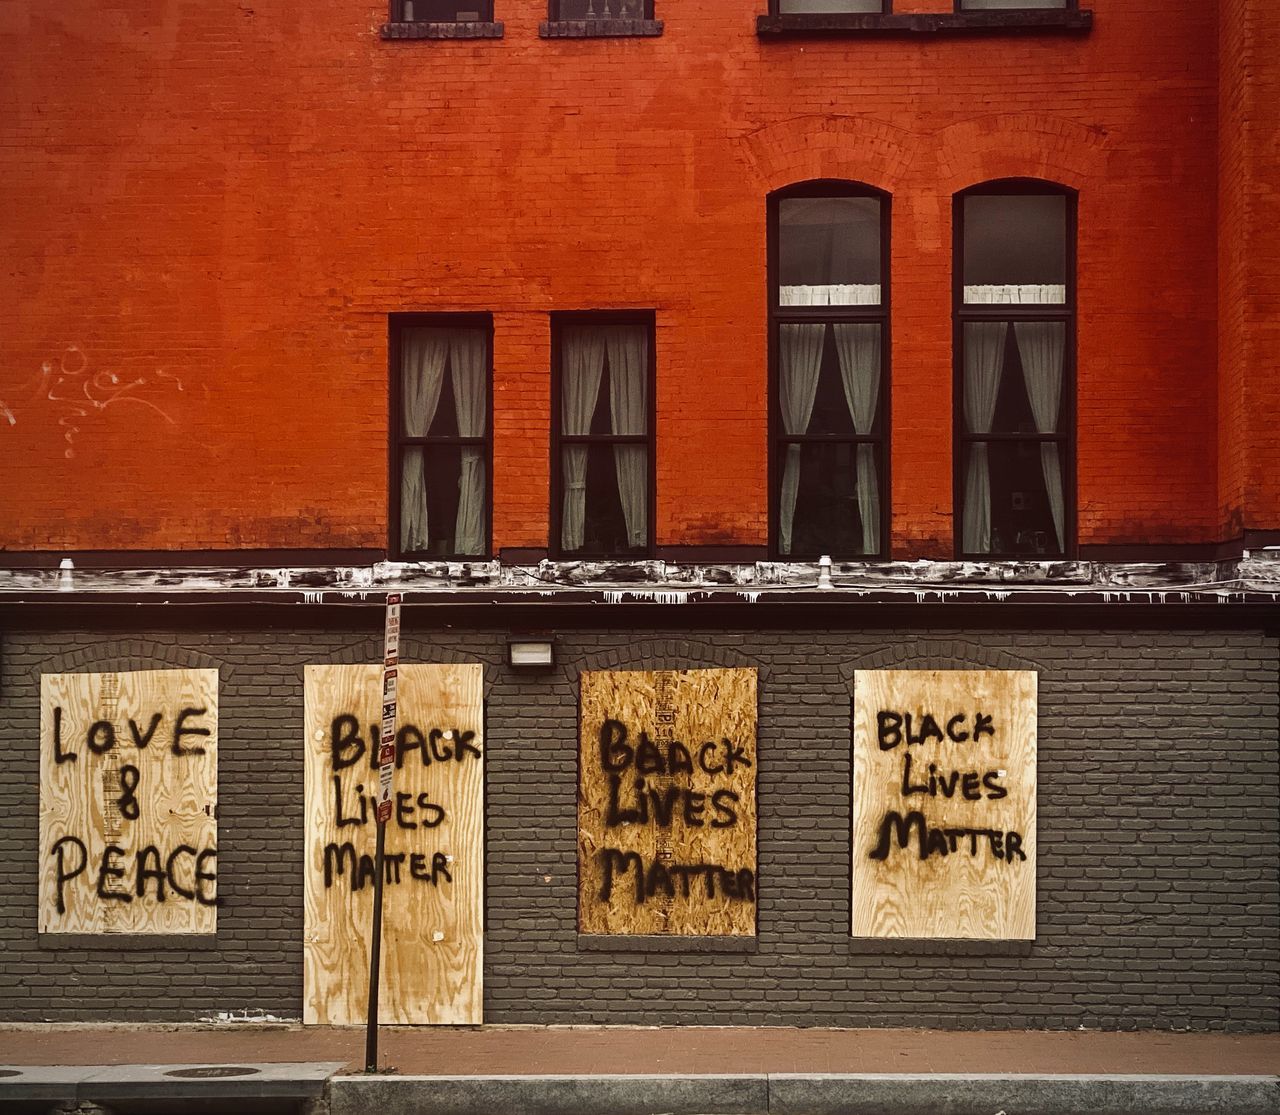 LOVE
&
PEACE
BLACK
LIVES
MATTER
BLACK
LIVES
MATTER
BLACK
LIVES
MATTER